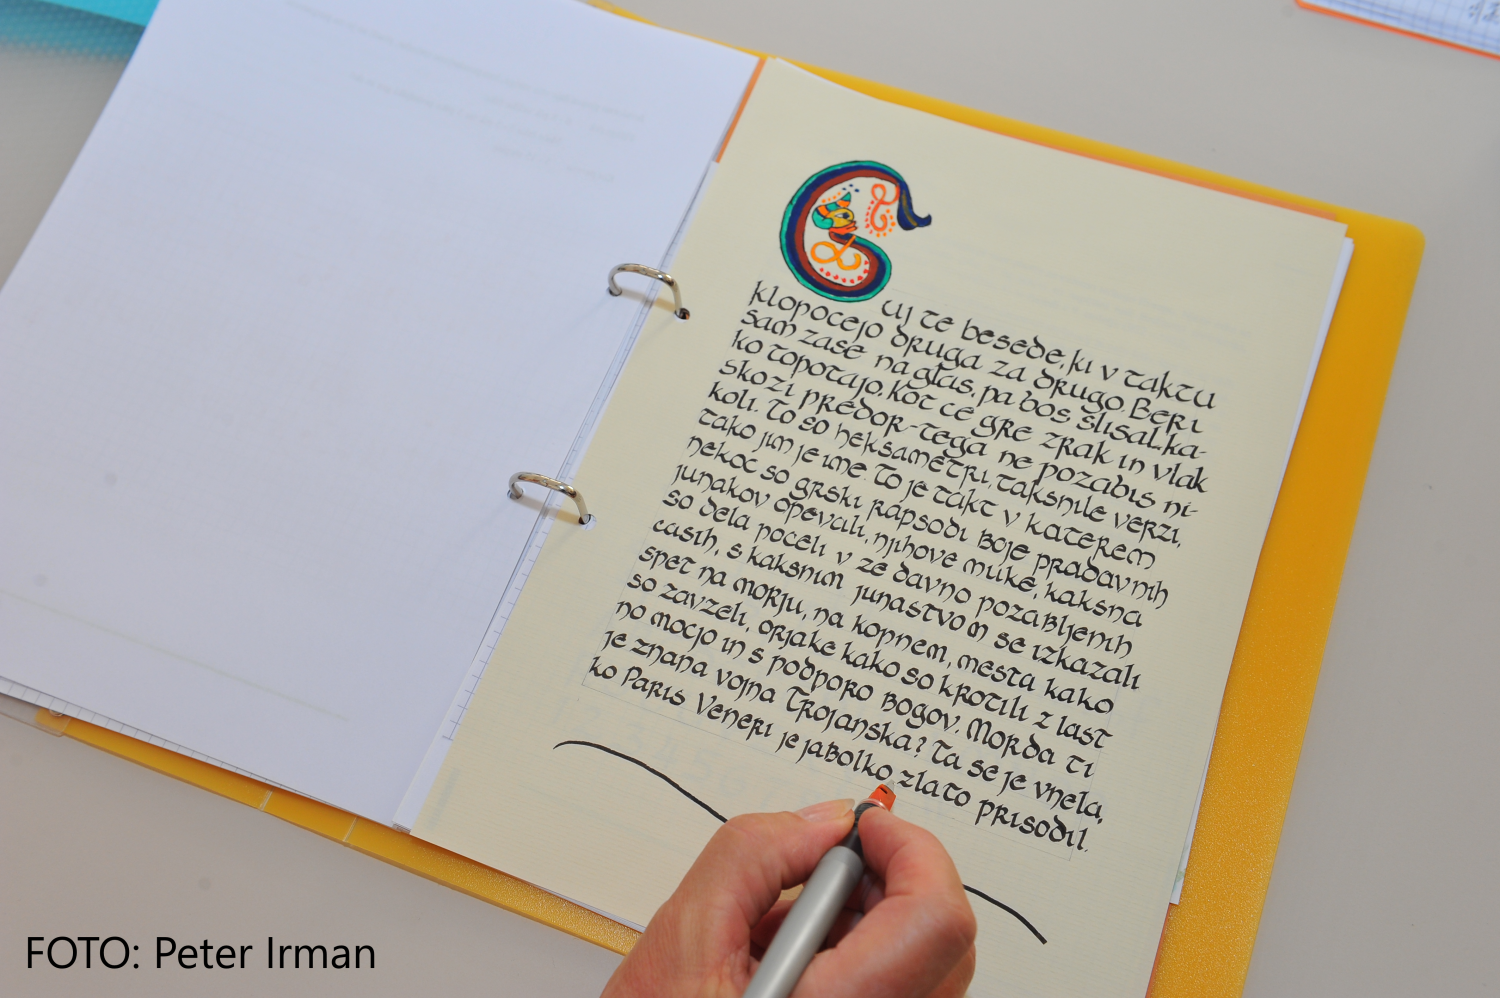 Čuj te besede, ki v taktu
klopocejo druga za drugo. Beri
sam zase naglas, pa boš slisal, ka-
ko topotajo. Kot ce gre zrak in vlak
skozi predor - tega ne pozabis ni-
koli. To so heksametri, taksnile verzi,
tako jim je ime. To je takt v katerem
nekoc so grski rapsodi boje pradavnih
junakov opevali, njihove muke, kaksna
so dela poceli v ze davno pozabljenih
casih, s kaksnim junastvom se izkazali
spet na morju, na kopnem, mesta kako
so zavzeli, orjake kako so krotili z last
no mocjo in s podporo bogov. Morda ti
je znana vojna Trojanska? Ta se je vnela,
ko Paris Veneri je jabolko zlato prisodil.
FOTO: Peter Irman